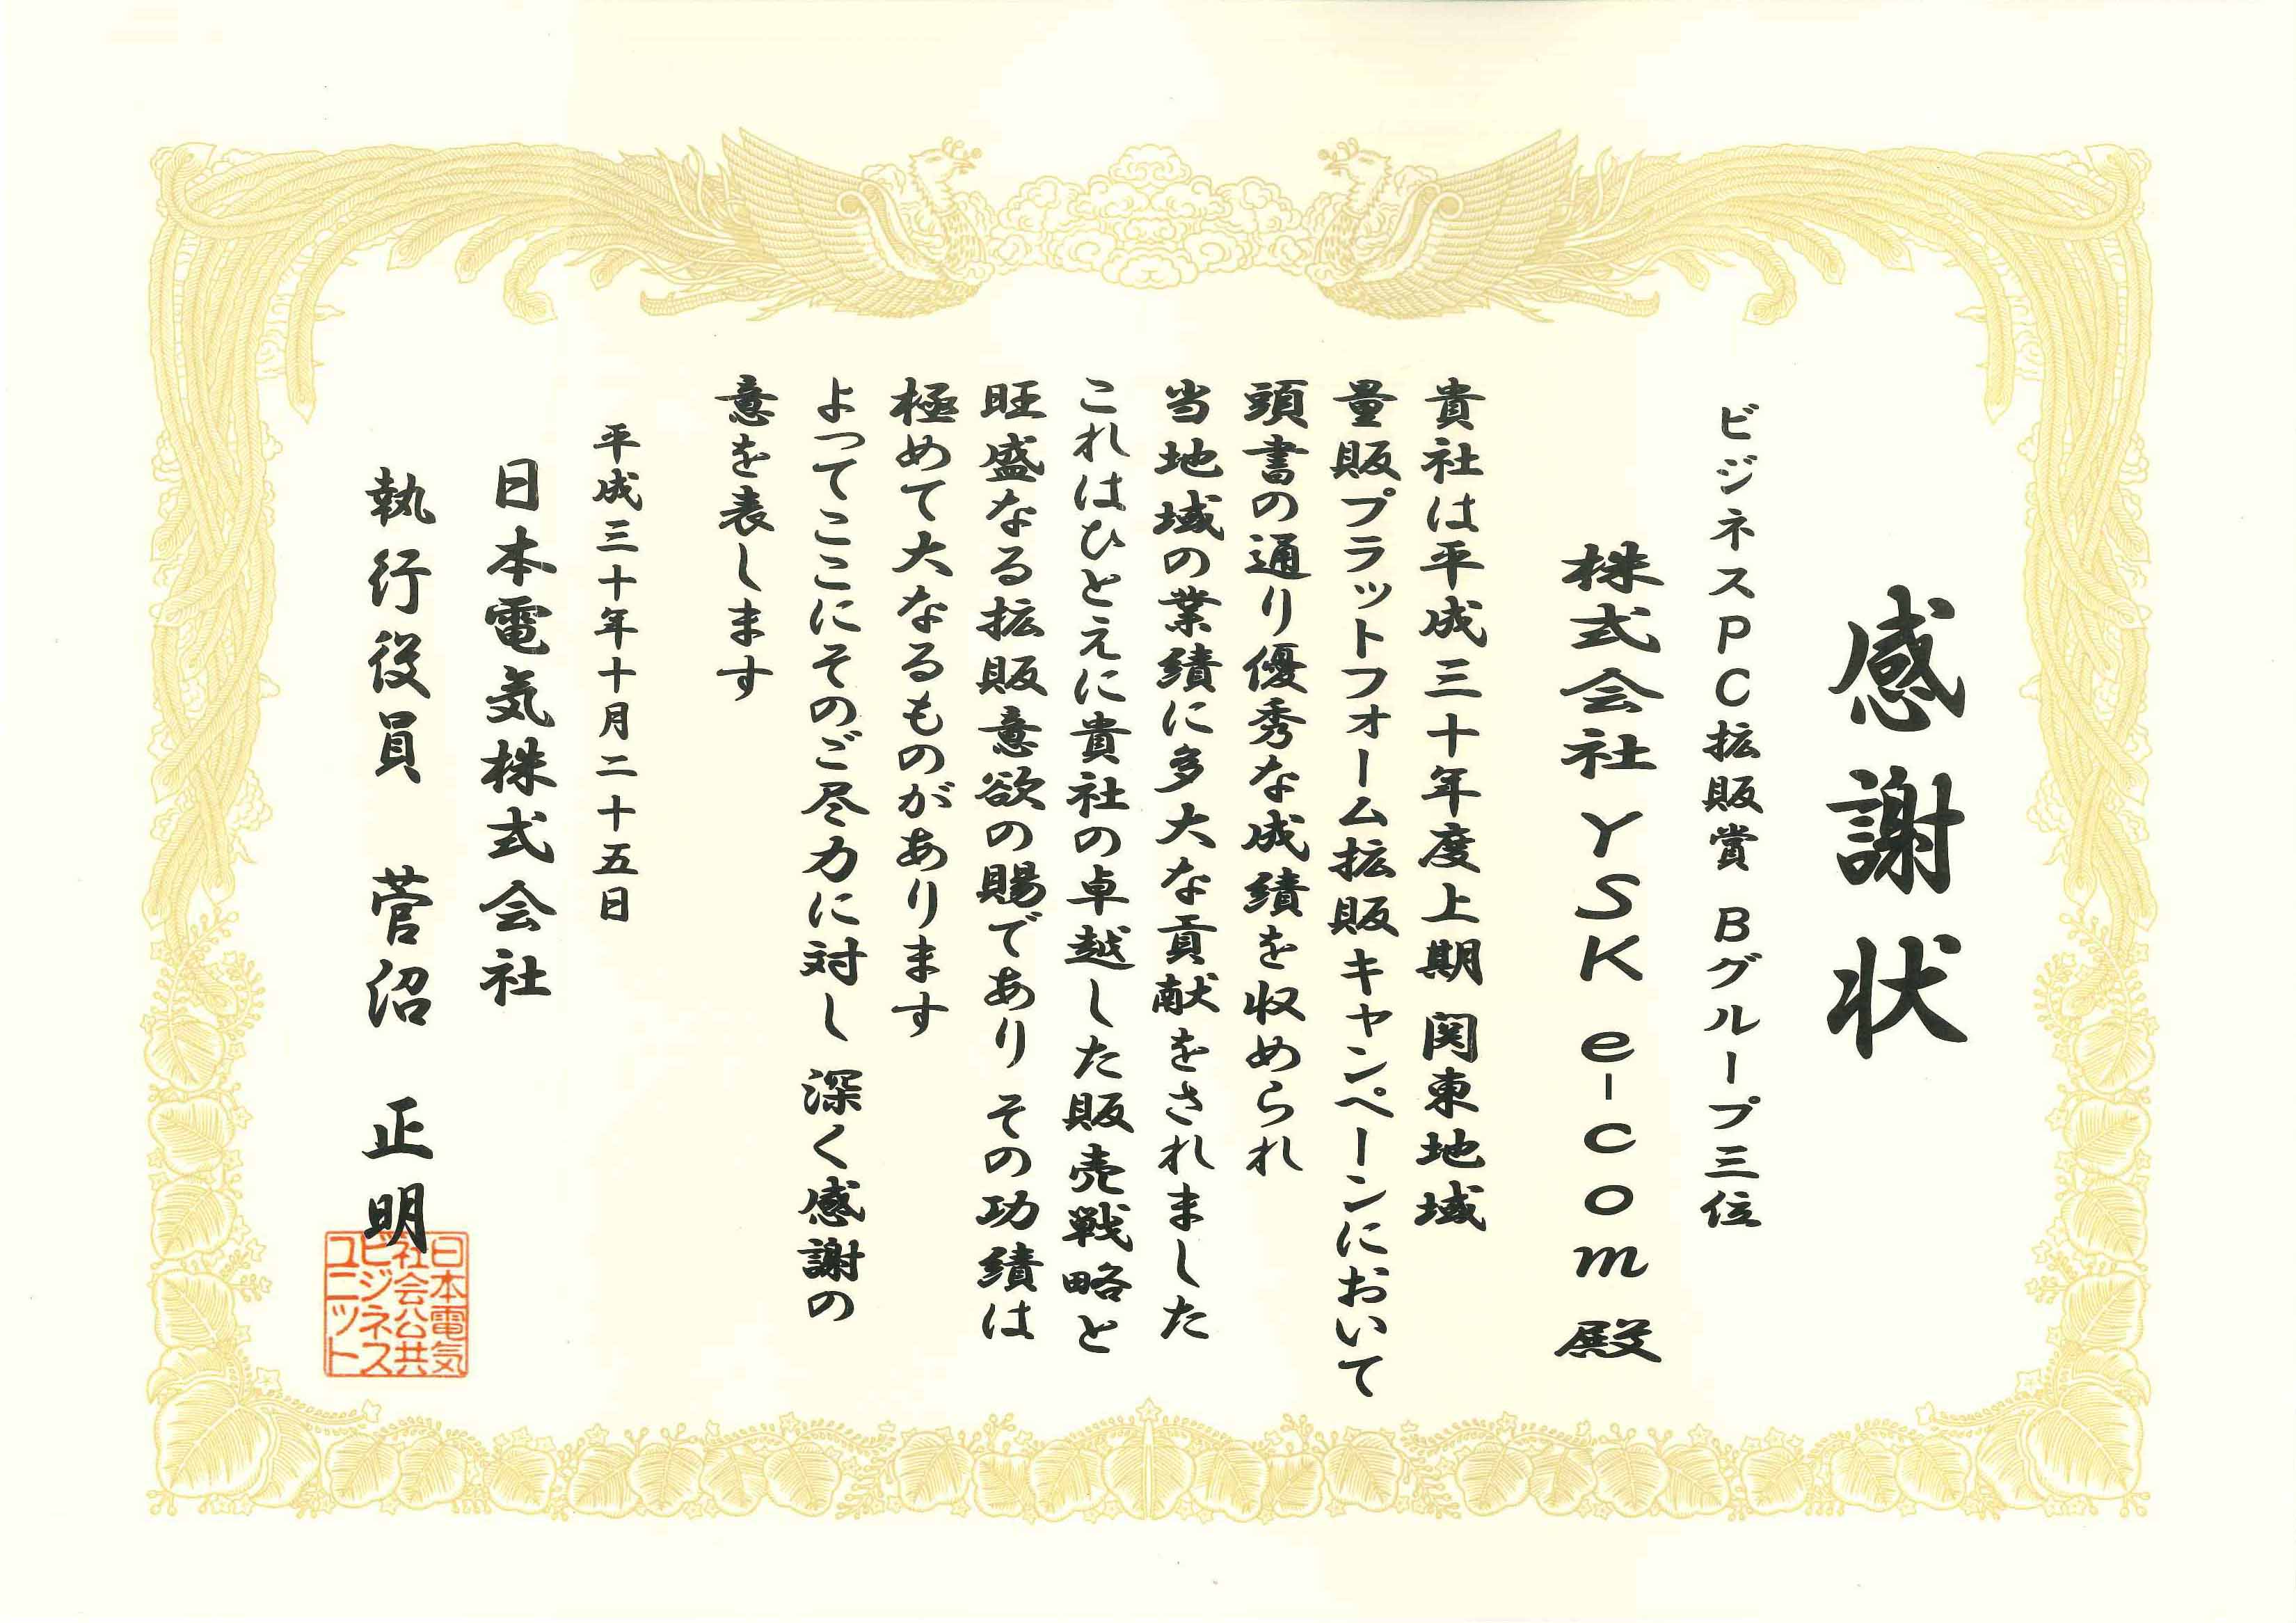 感謝状
ビジネスPC拡販賞 Bグループ三位
株式会社YSK e-com殿
貴社は平成三十年度上期 関東地域
量販プラットフォーム拡販キャンペーンにおいて
頭書の通り優秀な成績を収められ
当地域の業績に多大な貢献をされました
これはひとえに貴社の卓越した販売戦略と
旺盛なる拡販意欲の賜であり その功績は
極めて大なるものがあります
よってここにそのご尽力に対し 深く感謝の
意を表します
平成三十年十月二十五日
日本電気株式会社
執行役員 菅沼 正明
日本電気
社会公共
ビジネス
ユニット